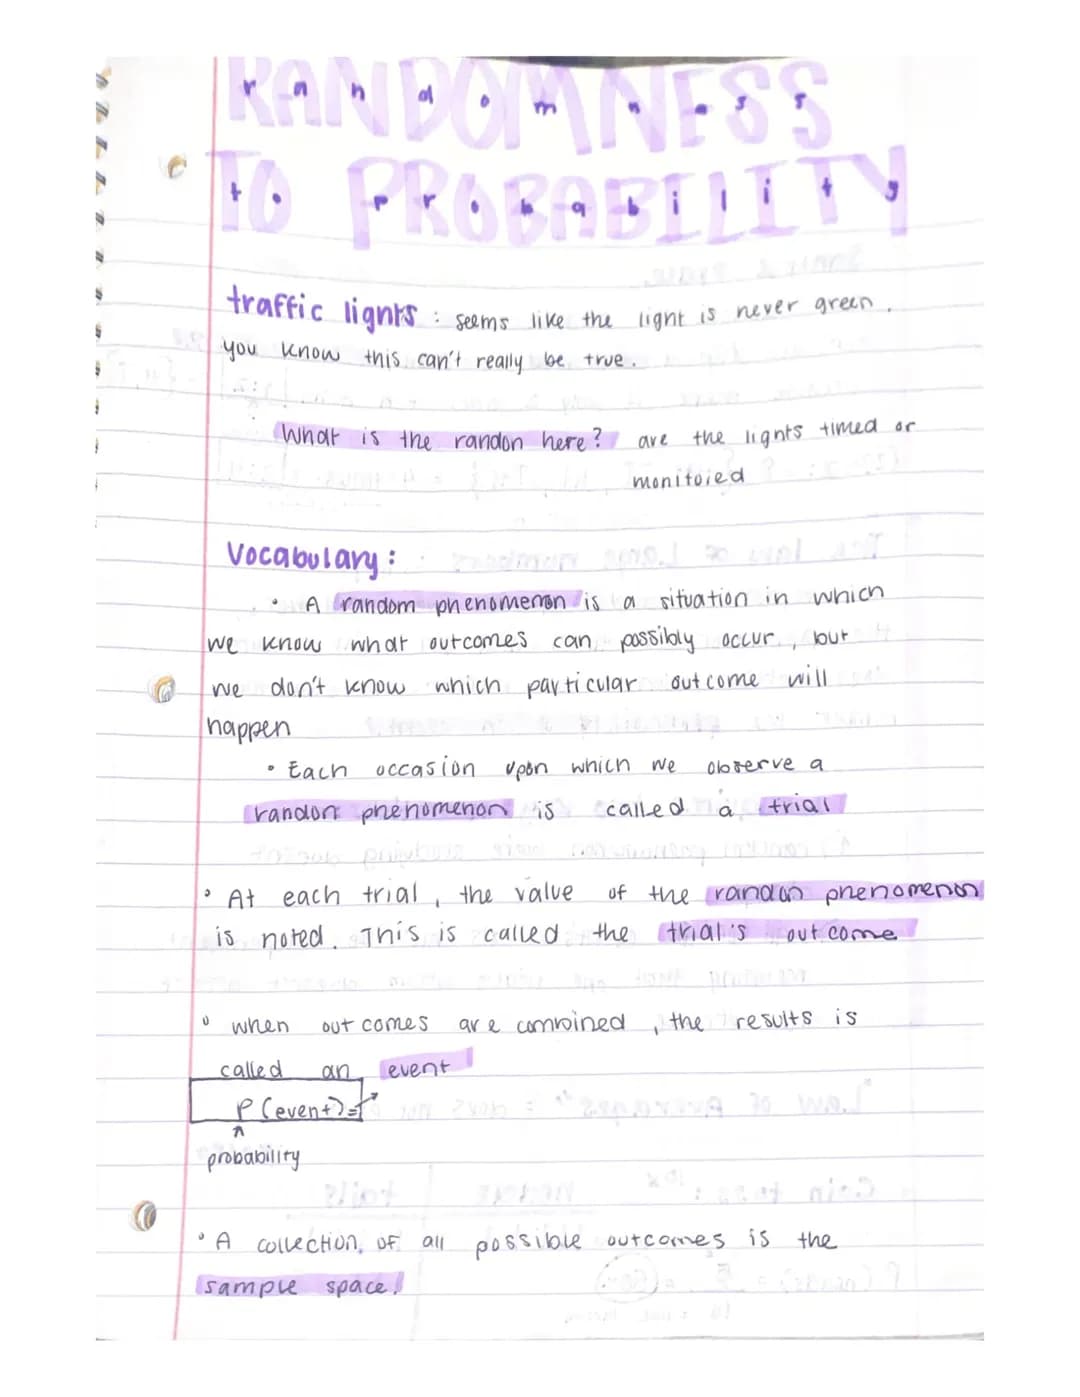 RANDOMNESS
randomness
TO PROBABILITY
to probability
traffic lights : seems like the light is never green .
you know this can't really be true .
What is the randon here? are the lights timed or
monitored
Vocabulary :
• A random phenomenon is a situation in which
we know what outcomes can possibly occur , but
we don't know which particular outcome will
happen
• Each occasion upon which we observe a
random phenomenon is called a trial
• At each trial , the value of the random phenomenon
is noted . This is called the trial's outcome
• when outcomes are combined , the results is
called an event
P (event) =
probability
• A collection of all possible outcomes is the
sample space .